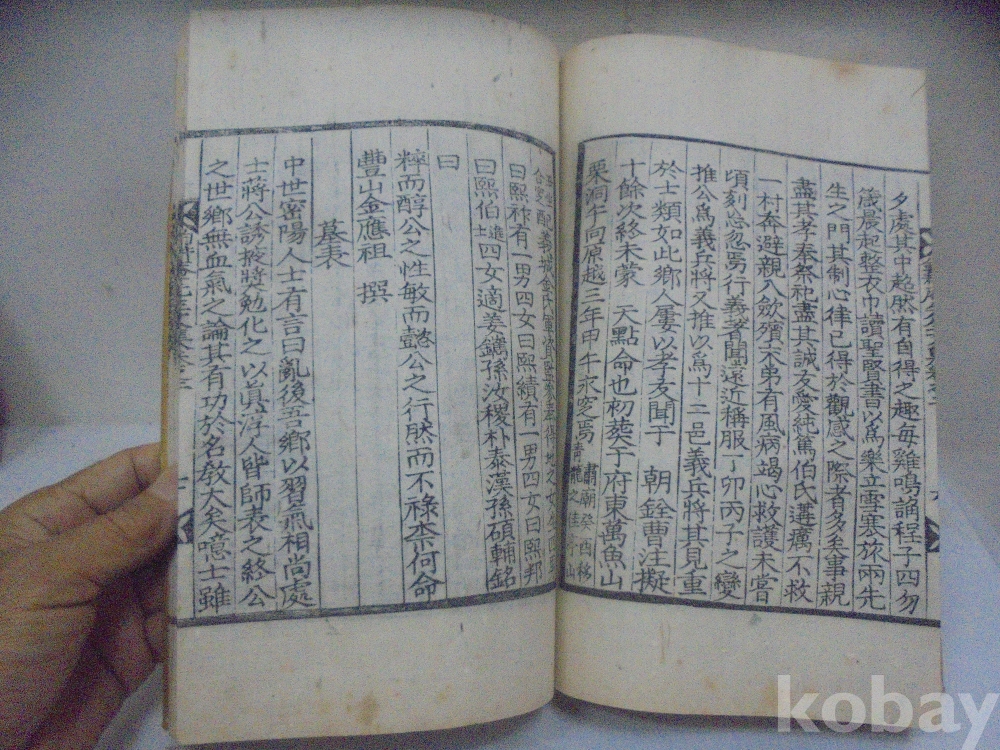 夕處其中超然有自得之趣每雞鳴誦程子四勿
箴晨起整衣巾讀聖賢書以爲樂立雪寒旅兩先
生之門其制心律已得於觀感之際者多矣事親
盡其孝奉祭祀盡其誠友愛純篤伯氏遘癘不救
一村奔避親入歛殯宋弟有風病竭心救護未嘗
頃刻忘忽焉行義著聞遠近稱服丁卯丙子之變
推公爲義兵將又推以爲十二邑義兵將其見重
於士類如此鄕人屢以孝友聞于 朝銓曹注擬
十餘次終未蒙 天點命也初葬于府東萬魚山
栗洞午向原越三年甲午永窆焉 肅廟癸酉移 青龍之 山
合窆配義城金氏軍資
曰熙 有一男四女曰熙績有一男四女曰熙邦
曰熙伯進士四女適姜 孫汝稷朴泰漢孫碩輔銘
曰
粹而醇公之性敏而懿公之行胡然而不祿柰何命
豐山金應祖 撰
墓表
中世密陽人士有言曰亂後吾鄕以習氣相尚處
士蔣公誘掖奬勉化之以眞淳人皆師表之終公
之世鄕無血氣之論其有功於名敎大矣噫士雖
kobay